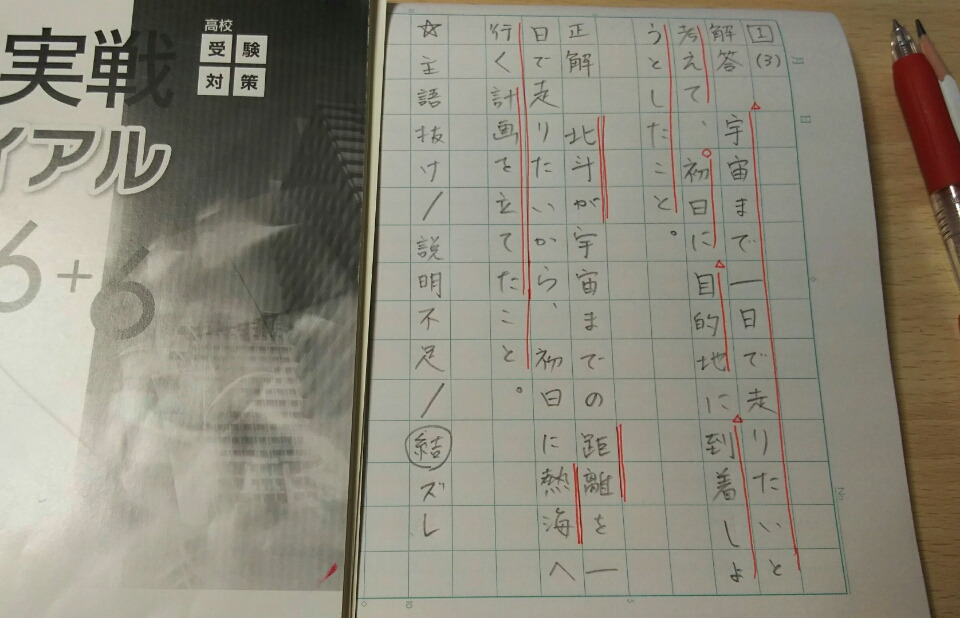 1 (3)
解答 宇宙まで一日で走りたいと
考えて、初日に目的地に到着しよ
うとしたこと。
正解 北斗が宇宙までの距離を一
日で走りたいから、初日に熱海へ
行く計画を立てたこと。
☆主語抜け/説明不足/結ズレ
高校
受験
対策
実戦
イアル
6+6